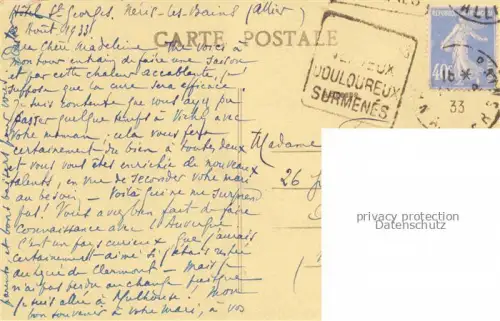 Hôtel St-Georges, Néris-les-Bains (Allier)
Août 1933
CARTE POSTALE
Ma Chère Madeleine. Me voici à
mon tour en train de faire une saison
et par cette chaleur accablante, je
suppose que la cure sera efficace.
Je suis contente que vous ayez pu
passer quelque temps à Vichy avec
votre maman : cela vous fera
certainement du bien à toutes deux
et vous vous êtes enrichie de nouveaux
talents, en vue de seconder votre mari
au besoin - Voilà qui ne me surprend
pas! Vous avez bien fait de faire
connaissance avec l'Auvergne
C'est un pays curieux que j'aurais
certainement aimé si j'étais restée
au lycée de Clermont - Mais je
n'ai pas perdu au change puisque
je suis allée à Mulhouse! Mon
bon souvenir à votre mari, à vos
parents, et bons baisers
NERVEUX
DOULOUREUX
SURMENÉS
REPUBLIQUE
40c
33
Madame
26
privacy protection
Datenschutz